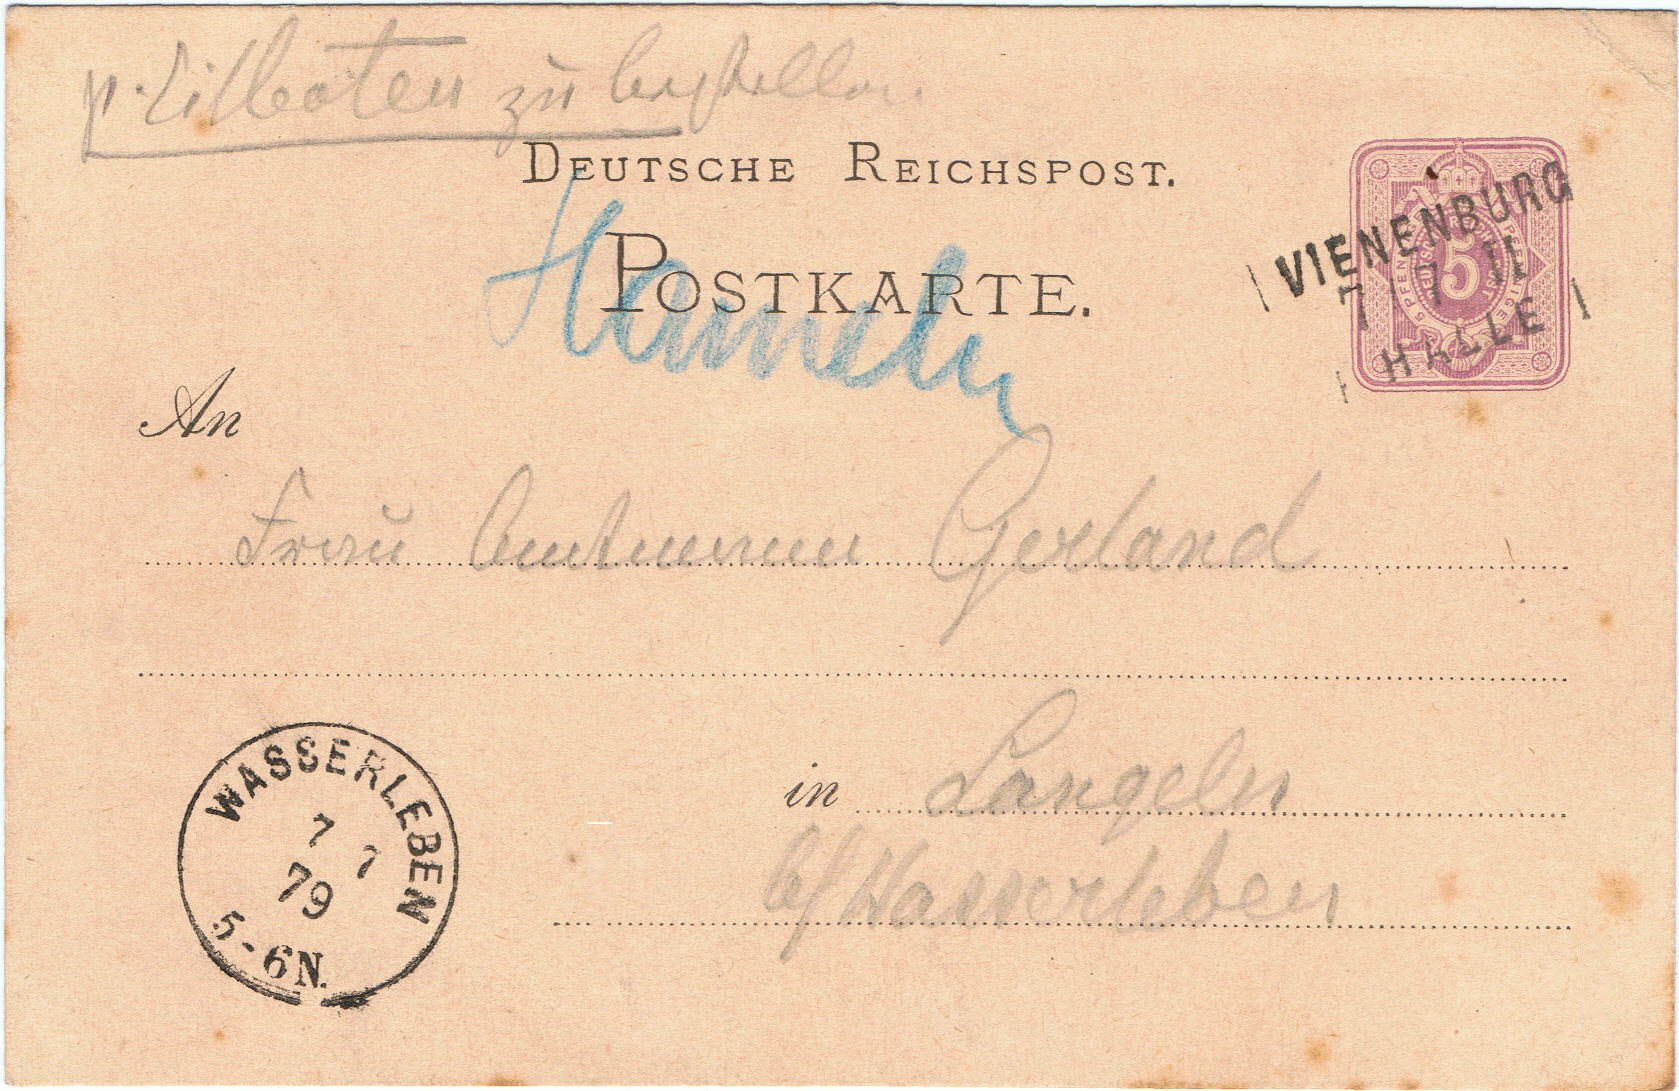 p. Eilboten zu bestellen.
DEUTSCHE REICHSPOST.
POSTKARTE.
Hameln
VIENENBURG
7 7 II
HALLE
5
An
Frau Amtmann Gerland
in Langeln
b/Wasserleben
WASSERLEBEN
7 7
79
5-6N.